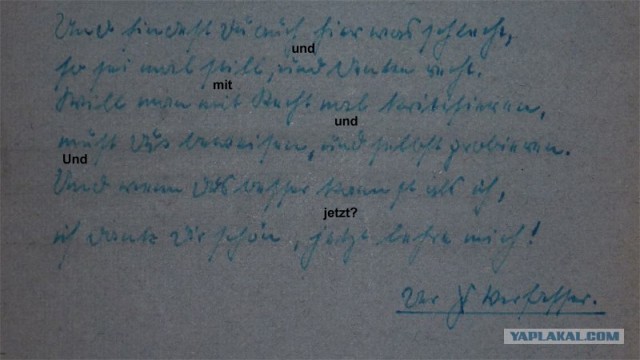 Und findest Du auch hier was schlecht,
und
so sei mal still, und denke recht.
mit
Will man mit Recht mal kritisieren,
und
mußt du's beweisen, und selbst probieren.
Und
Und wenn du's besser kannst als ich,
jetzt?
ich danke dir schön, jetzt lehre mich!
Der Verfasser.
YAPLAKAL.COM